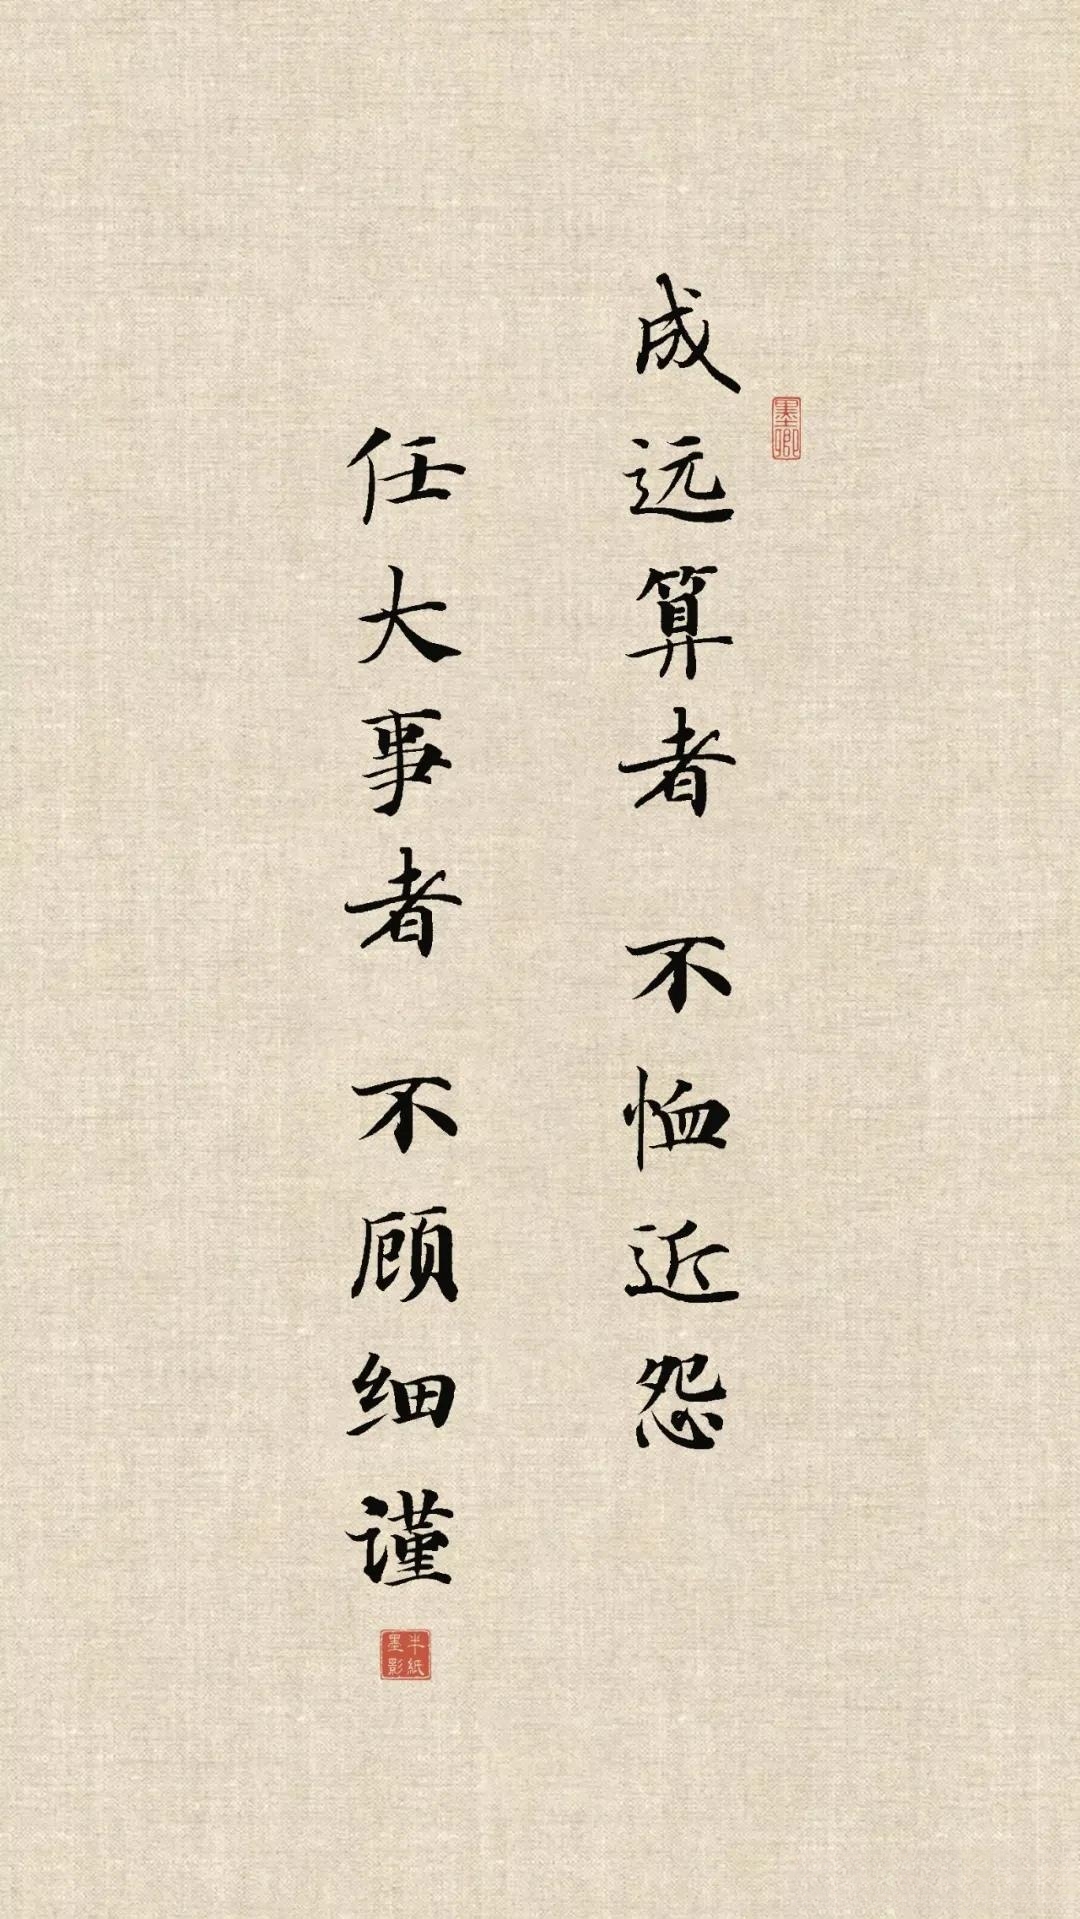 成远算者 不恤近怨
任大事者 不顾细谨
墨卿
半纸墨影